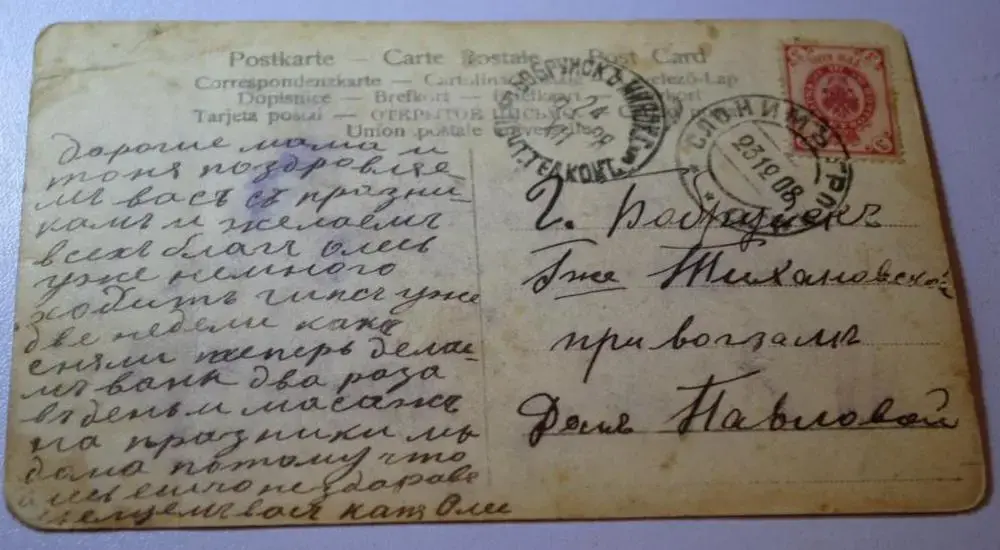 Postkarte — Carte Postale — Post Card
Correspondenzkarte — Cartolina Levelező-Lap
Dopisnice — Brefkort — Briefkaart
Tarjeta postal — ОТКРЫТОЕ ПИСЬМО
Union postale universelle
БОБРУЙСКЪ
СЛОНИМЪ ГР
23 12 08
дорогие мама и
тоня поздравляе
мъ васъ съ празни
камъ и желаемъ
всехъ благъ олесь
уже немного
ходитъ гипсъ уже
две недели какъ
сняли теперь делае
мъ ваны два раза
въ день и масажъ
на празники мы
дома потому что
есчо не здорове
Оли
Г. Бобруйскъ
Гже Тихановской
при вокзалъ
Домъ Павловой